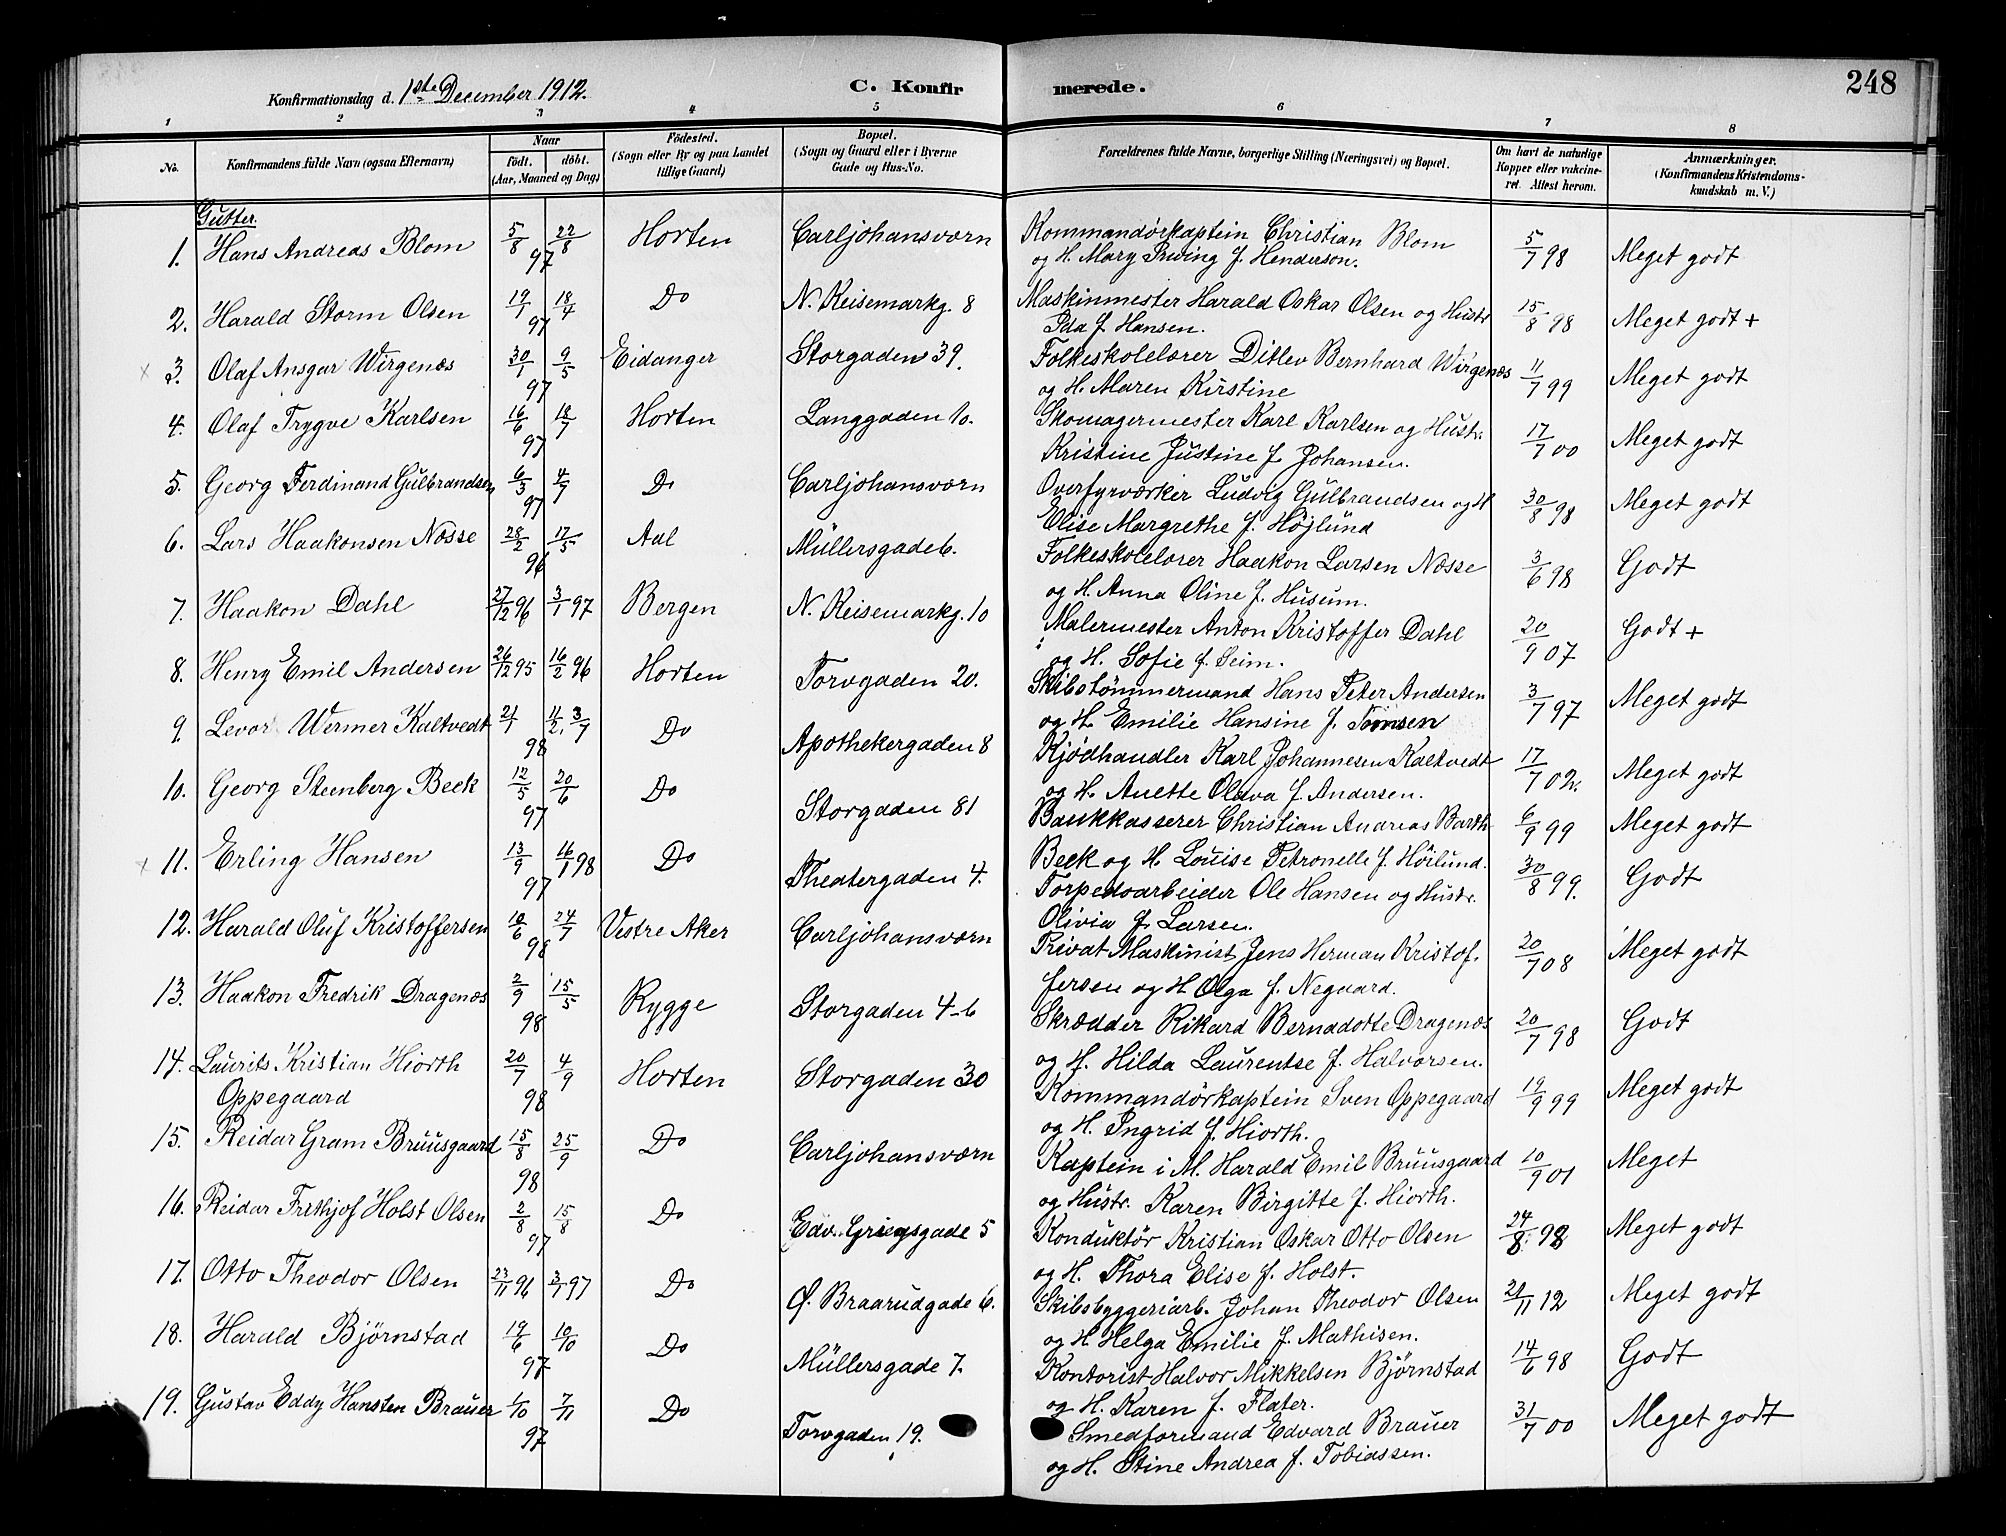 248
Konfirmationsdag d. 1ste December 1912.
C. Konfirmerede.
1 2 3 4 5 6 7 8
No.
Konfirmandens fulde Navn (ogsaa Efternavn)
Naar
födt. döbt.
(Aar, Maaned og Dag)
Födested.
(Sogn eller By og paa Landet
tillige Gaard)
Bopæl.
(Sogn og Gaard eller i Byerne
Gade og Hus-No.
Forældrenes fulde Navne, borgerlige Stilling (Næringsvei) og Bopæl.
Om havt de naturlige
Kopper eller vakcine-
ret. Attest herom.
Anmærkninger.
(Konfirmandens Kristendoms-
kundskab m. V.)
Gutter.
1. Hans Andreas Blom 5/8 22/8 97 Horten Carljohansværn Kommandørkaptein Christian Blom 5/7 98 Meget godt
og H. Mary f. Henderson.
2. Harald Storm Olsen 19/1 18/4 97 Do N. Keisemarkg. 8 Maskinmester Harald Oskar Olsen og Hustr 15/8 98 Meget godt +
Ida f. Hansen.
x 3. Olaf Ansgar Wirgenæs 30/1 9/5 97 Eidanger Storgaden 39. Folkeskolelærer Ditlev Bernhard Wirgenæs 11/7 99 Meget godt
og H. Maren Kirstine
4. Olaf Trygve Karlsen 16/6 18/7 97 Horten Langgaden 10. Skomagermester Karl Karlsen og Hustr. 17/7 00 Meget godt
Kristine Justine f. Johansen.
5. Georg Ferdinand Gulbrandsen 6/3 4/7 97 Do Carljohansværn Overfyrværker Ludvig Gulbrandsen og H 30/8 98 Meget godt
Elise Margrethe f. Højlund
6. Lars Haakonsen Næsse 28/2 17/5 96 Aal Müllersgade 6. Folkeskolelærer Haakon Larsen Næsse 3/6 98 Godt
og H. Anna Oline f. Husum.
7. Haakon Dahl 27/12 96 3/1 97 Bergen N. Keisemarkg. 10 Malermester Anton Kristoffer Dahl 20/9 07 Godt +
og H. Sofie f. Seim.
8. Henry Emil Andersen 26/12 95 16/2 96 Horten Torvgaden 20. Skibstømmermand Hans Peter Andersen 3/7 97 Meget godt
og H. Emilie Hansine f. Tømsen
9. Levor Wermer Kaltvedt 21/1 11/2. 3/7 98 Do Apothekergaden 8 Kjødhandler Karl Johannesen Kaltvedt 17/7 02. Meget godt
og H. Anette Olava f. Andersen.
10. Georg Steenberg Beck 12/5 20/6 97 Do Storgaden 81 Bankkasserer Christian Andreas Barth 6/9 99 Meget godt
Beck og H. Louise Petronelle f. Höilund.
x 11. Erling Hansen 13/9 97 16/1 98 Do Theatergaden 4. Torpedoarbeider Ole Hansen og Hustr. 30/8 99. Godt
Olivia f. Larsen.
12. Harald Oluf Kristoffersen 10/6 24/7 98 Vestre Aker Carljohansværn Privat Maskinist Jens Herman Kristof- 20/7 08 Meget godt
fersen og H. Olga f. Negaard.
13. Haakon Fredrik Dragenæs 2/9 15/5 98 Rygge Storgaden 46 Skrædder Rikard Bernadotte Dragenæs 20/7 98 Godt
og H. Hilda Laurentse f. Halvorsen.
14. Laurits Kristian Hiorth 20/7 4/9 98 Horten Storgaden 30 Kommandørkaptein Sven Oppegaard 19/9 99 Meget godt
Oppegaard og H. Ingrid f. Hiorth.
15. Reidar Gram Bruusgaard 15/8 25/9 98 Do Carljohansværn Kaptein i M. Harald Emil Bruusgaard 10/9 01 Meget
og Hustr. Karen Birgitte f. Hiorth.
16. Reidar Frithjof Holst Olsen 2/8 15/8 97 Do Edv. Griegsgade 5 Konduktør Kristian Oskar Otto Olsen 24/8. 98 Meget godt
og H. Thora Elise f. Holst.
17. Otto Theodor Olsen 23/11 96 3/1 97 Do Braarudgade 6. Skibsbyggeriarb. Johan Theodor Olsen 21/11 12 Meget godt
og H Helga Emilie f. Mathisen.
18. Harald Bjørnstad 19/6 10/10 97 Do Müllersgade 7. Kontorist Halvor Mikkelsen Bjørnstad 14/6 98 Godt
og H. Karen f. Flater.
19. Gustav Eddy Hansten Brauer 1/10 7/11 97 Do Torvgaden 19. Smedformand Edvard Brauer 31/7 00 Meget godt
og H. Stine Andrea f. Tobiassen.